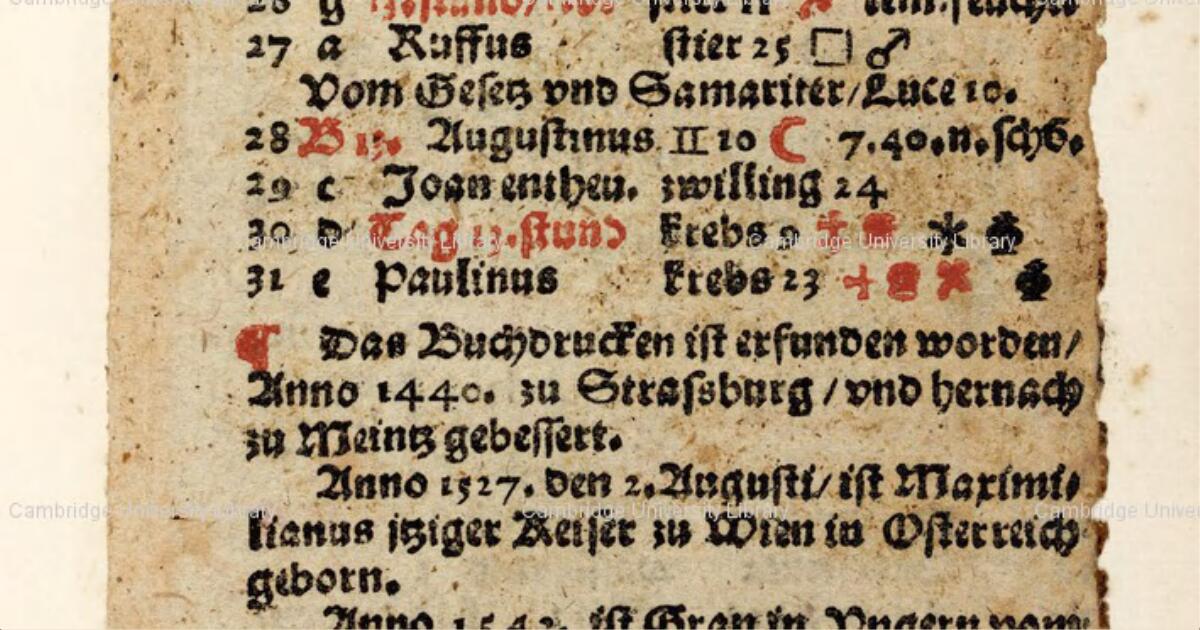 27 a Ruffus stier 25 □ ♂
Vom Gesetz vnd Samariter/Luce 10.
28 B 13. Augustinus II 10 ☾ 7.40.n.sch6.
29 c Joan entheu. zwilling 24
30 d Tag 13.stund krebs 9
31 e Paulinus krebs 23
¶ Das Buchdrucken ist erfunden worden/
Anno 1440. zu Strassburg / vnd hernach
zu Meintz gebessert.
Anno 1527. den 2. Augusti/ ist Maximi-
lianus itziger Keiser zu Wien in Osterreich
geborn.
Anno 1543. ist Gran in Vngern vom
Cambridge University Library